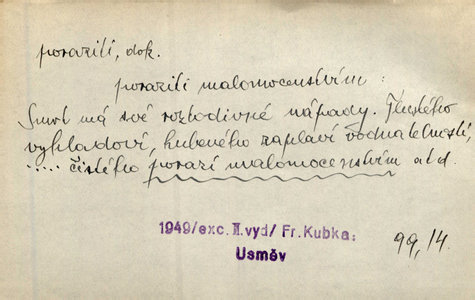 porazili, dok.
porazili malomocenstvím:
Smrt má své roztodivné nápady. Tlustého
vyhladoví, hubeného zaplaví vodnatelností,
..... čistého porazí malomocenstvím atd.
1949/exc. II. vyd/ Fr. Kubka:
Usměv
99,14.